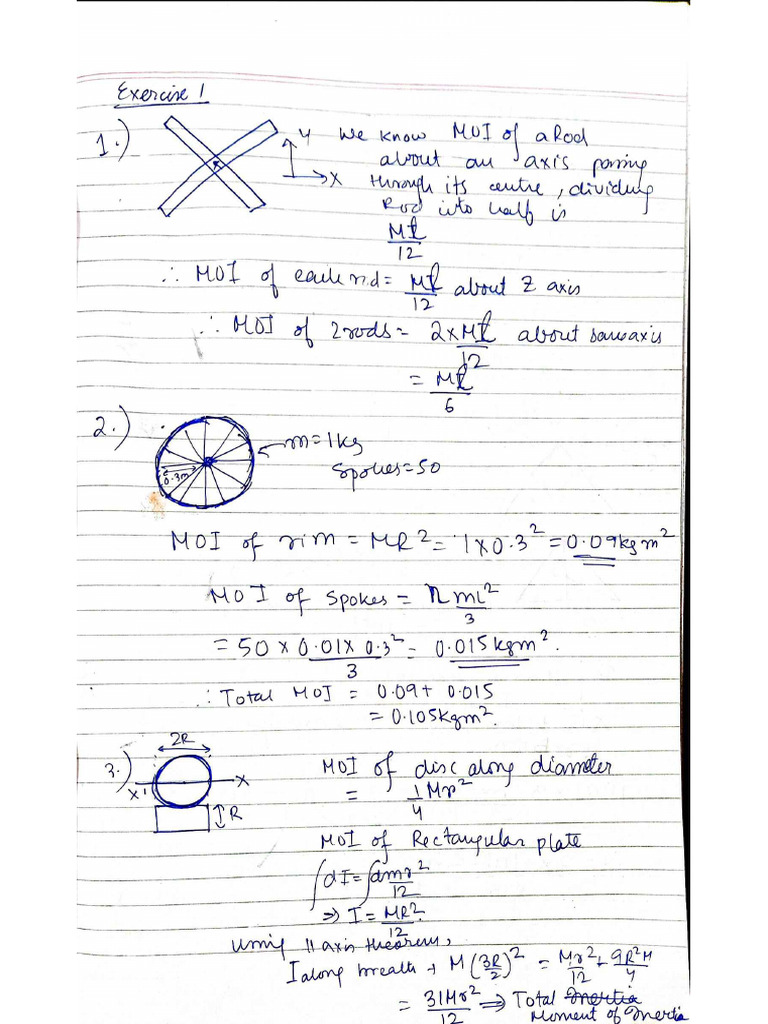 Exercise 1
1.)
Y We know MOI of a Rod
about an axis passing
X through its centre, dividing
Rod into half is
Ml
12
∴ MOI of each rod = Ml about Z axis
12
∴ MOI of 2 rods = 2xMl about same axis
12
= Ml
6
2.)
m=1kg
Spokes=50
0.3m
MOI of rim = MR² = 1x0.3² = 0.09kgm²
MOI of spokes = nml²
3
= 50 x 0.01x 0.3² = 0.015kgm².
3
∴ Total MOI = 0.09+ 0.015
= 0.105kgm².
2R
3.) X' X MOI of disc along diameter
= 1 Mr²
4
R
MOI of Rectangular plate
∫dI = ∫dmr²
12
⇒ I = MR²
12
Using || axis theorem,
I along breath + M(3R/2)² = Mr²/12 + 9R²M/4
= 31Mr² ⇒ Total Inertia
12 Moment of Inertia